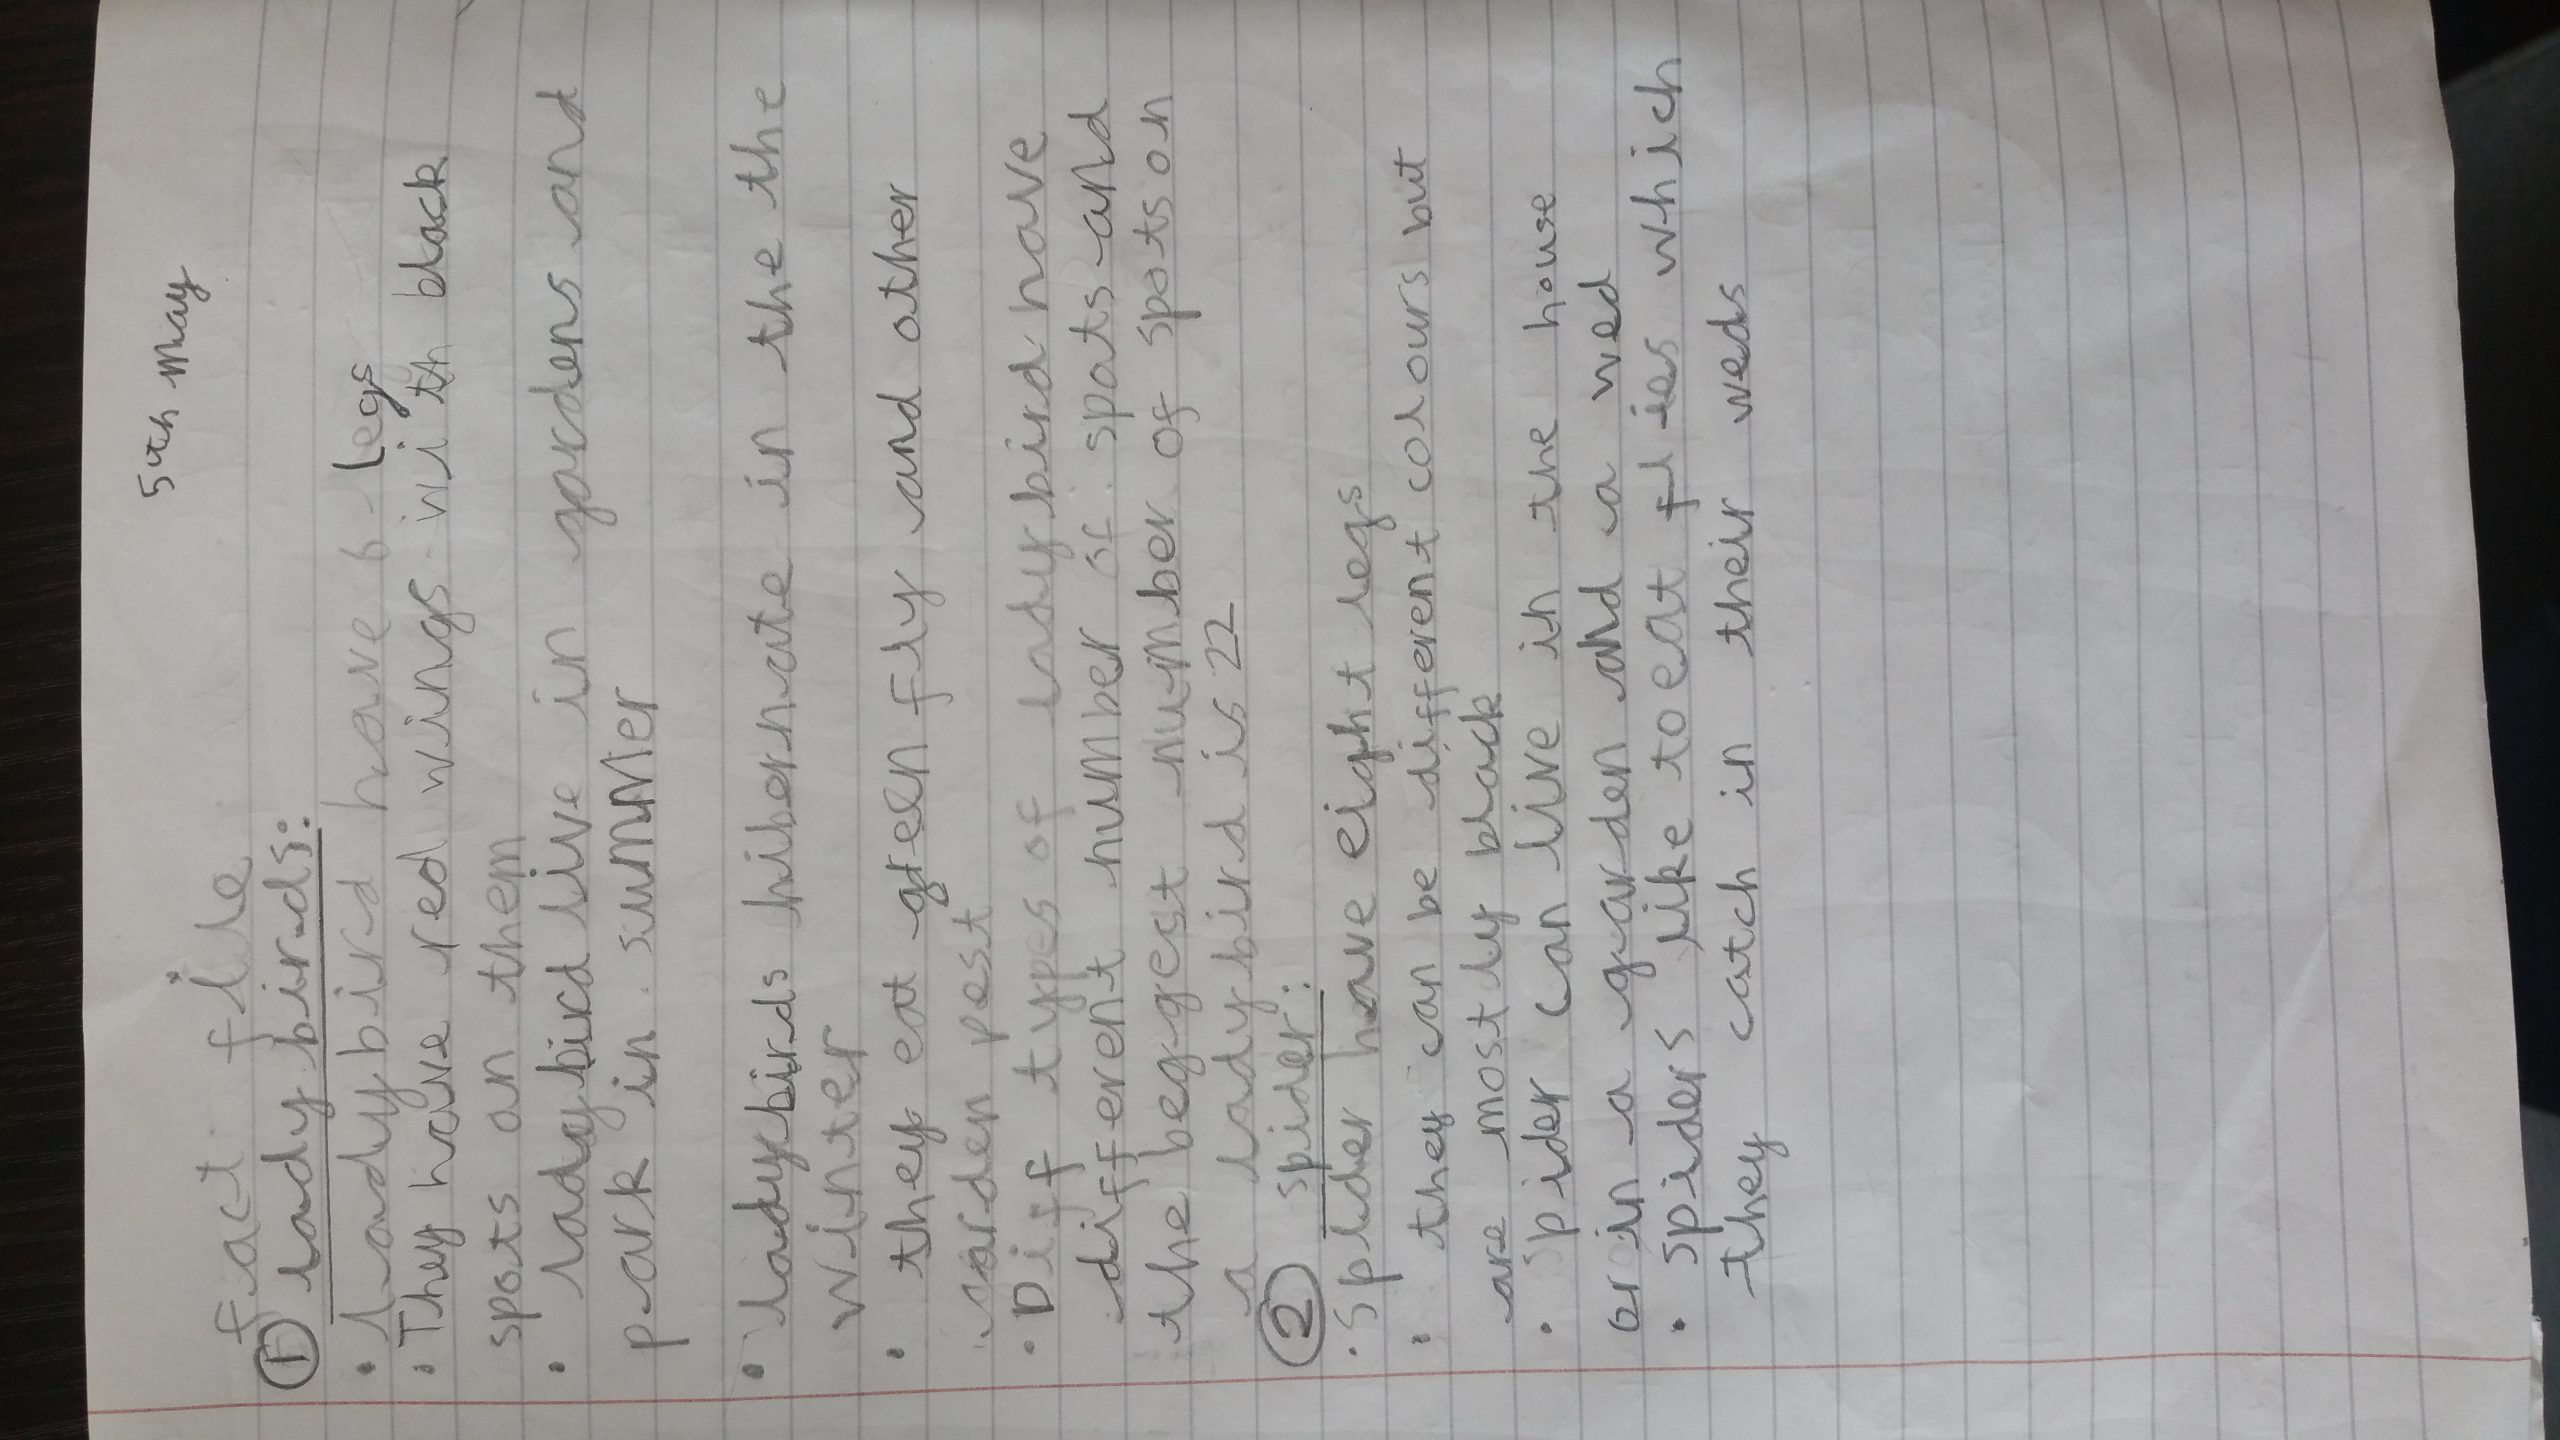 5th may
fact file
① lady birds:
• Ladybird have 6 Legs
• They have red wings with black
spots an them
• ladybird live in gardens and
park in summer
• ladybirds hibernate in the the
winter
• they eat green fly and other
garden pest
• Dif types of ladybird have
different number of spots and
the beggest number of spots on
a ladybird is 22
② spider:
• Spider have eight legs
• they can be different colours but
are mostly black
• Spider can live in the house
or in a garden and a wed
• Spiders like to eat flies which
they catch in their weds